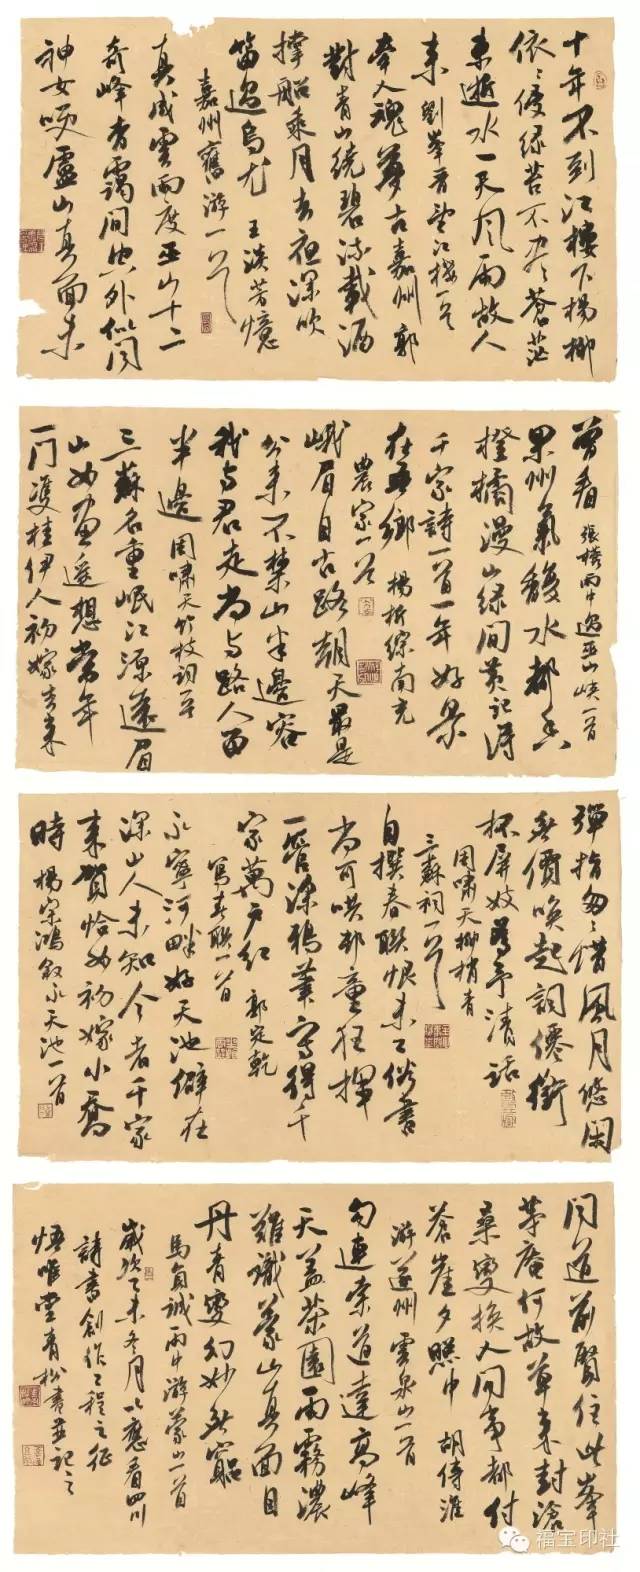 十年不到江楼下杨柳
依依侵绿苔不尽苍茫
东逝水一天风雨故人
来 刘峰晋望江楼一首
牵人魂梦古嘉州郭
对青山绕碧流载酒
撑船乘月去夜深吹
笛过乌尤 王淡芳忆
嘉州旧游一首
真成云雨度巫山十二
奇峰杳霭间
神女峡庐山真面未
曾看 张榕雨中过巫山峡一首
果州气馥水都香
橙橘漫山绿间黄记得
千家诗一首一年好景
在吾乡 杨析综南充
农家一首
峨眉自古路朝天最是
公来不禁山半边容
我与君走尚与路人留
半边 周啸天竹枝词一首
三苏名重岷江源远眉
山如画遥想当年
一门双桂伊人初嫁去来
弹指匆匆惜风月悠闲
无价唤起词仙衔
杯屏妓为予清话
周啸天柳梢青
三苏祠一首
自撰春联恨未工俗书
尚可哄邻童狂挥
一管涂鸦笔写得千
家万户红 郭定乾
写春联一首
永宁河畔好天池僻在
深山人未知今者千家
来贺恰如初嫁小乔
时 杨宗鸿叙永天池一首
问道前贤住此峰
茅庵何故草来封沧
桑变换人间事都付
苍崖夕照中 胡传淮
游遂州云泉山一首
勾连索道达高峰
天盖茶园雨雾浓
难识蒙山真面目
丹青变幻妙无穷
马负诚雨中游蒙山一首
岁次乙未冬月以应看四川
诗书创作工程之征
悟唯堂青松书并记之
福宝印社